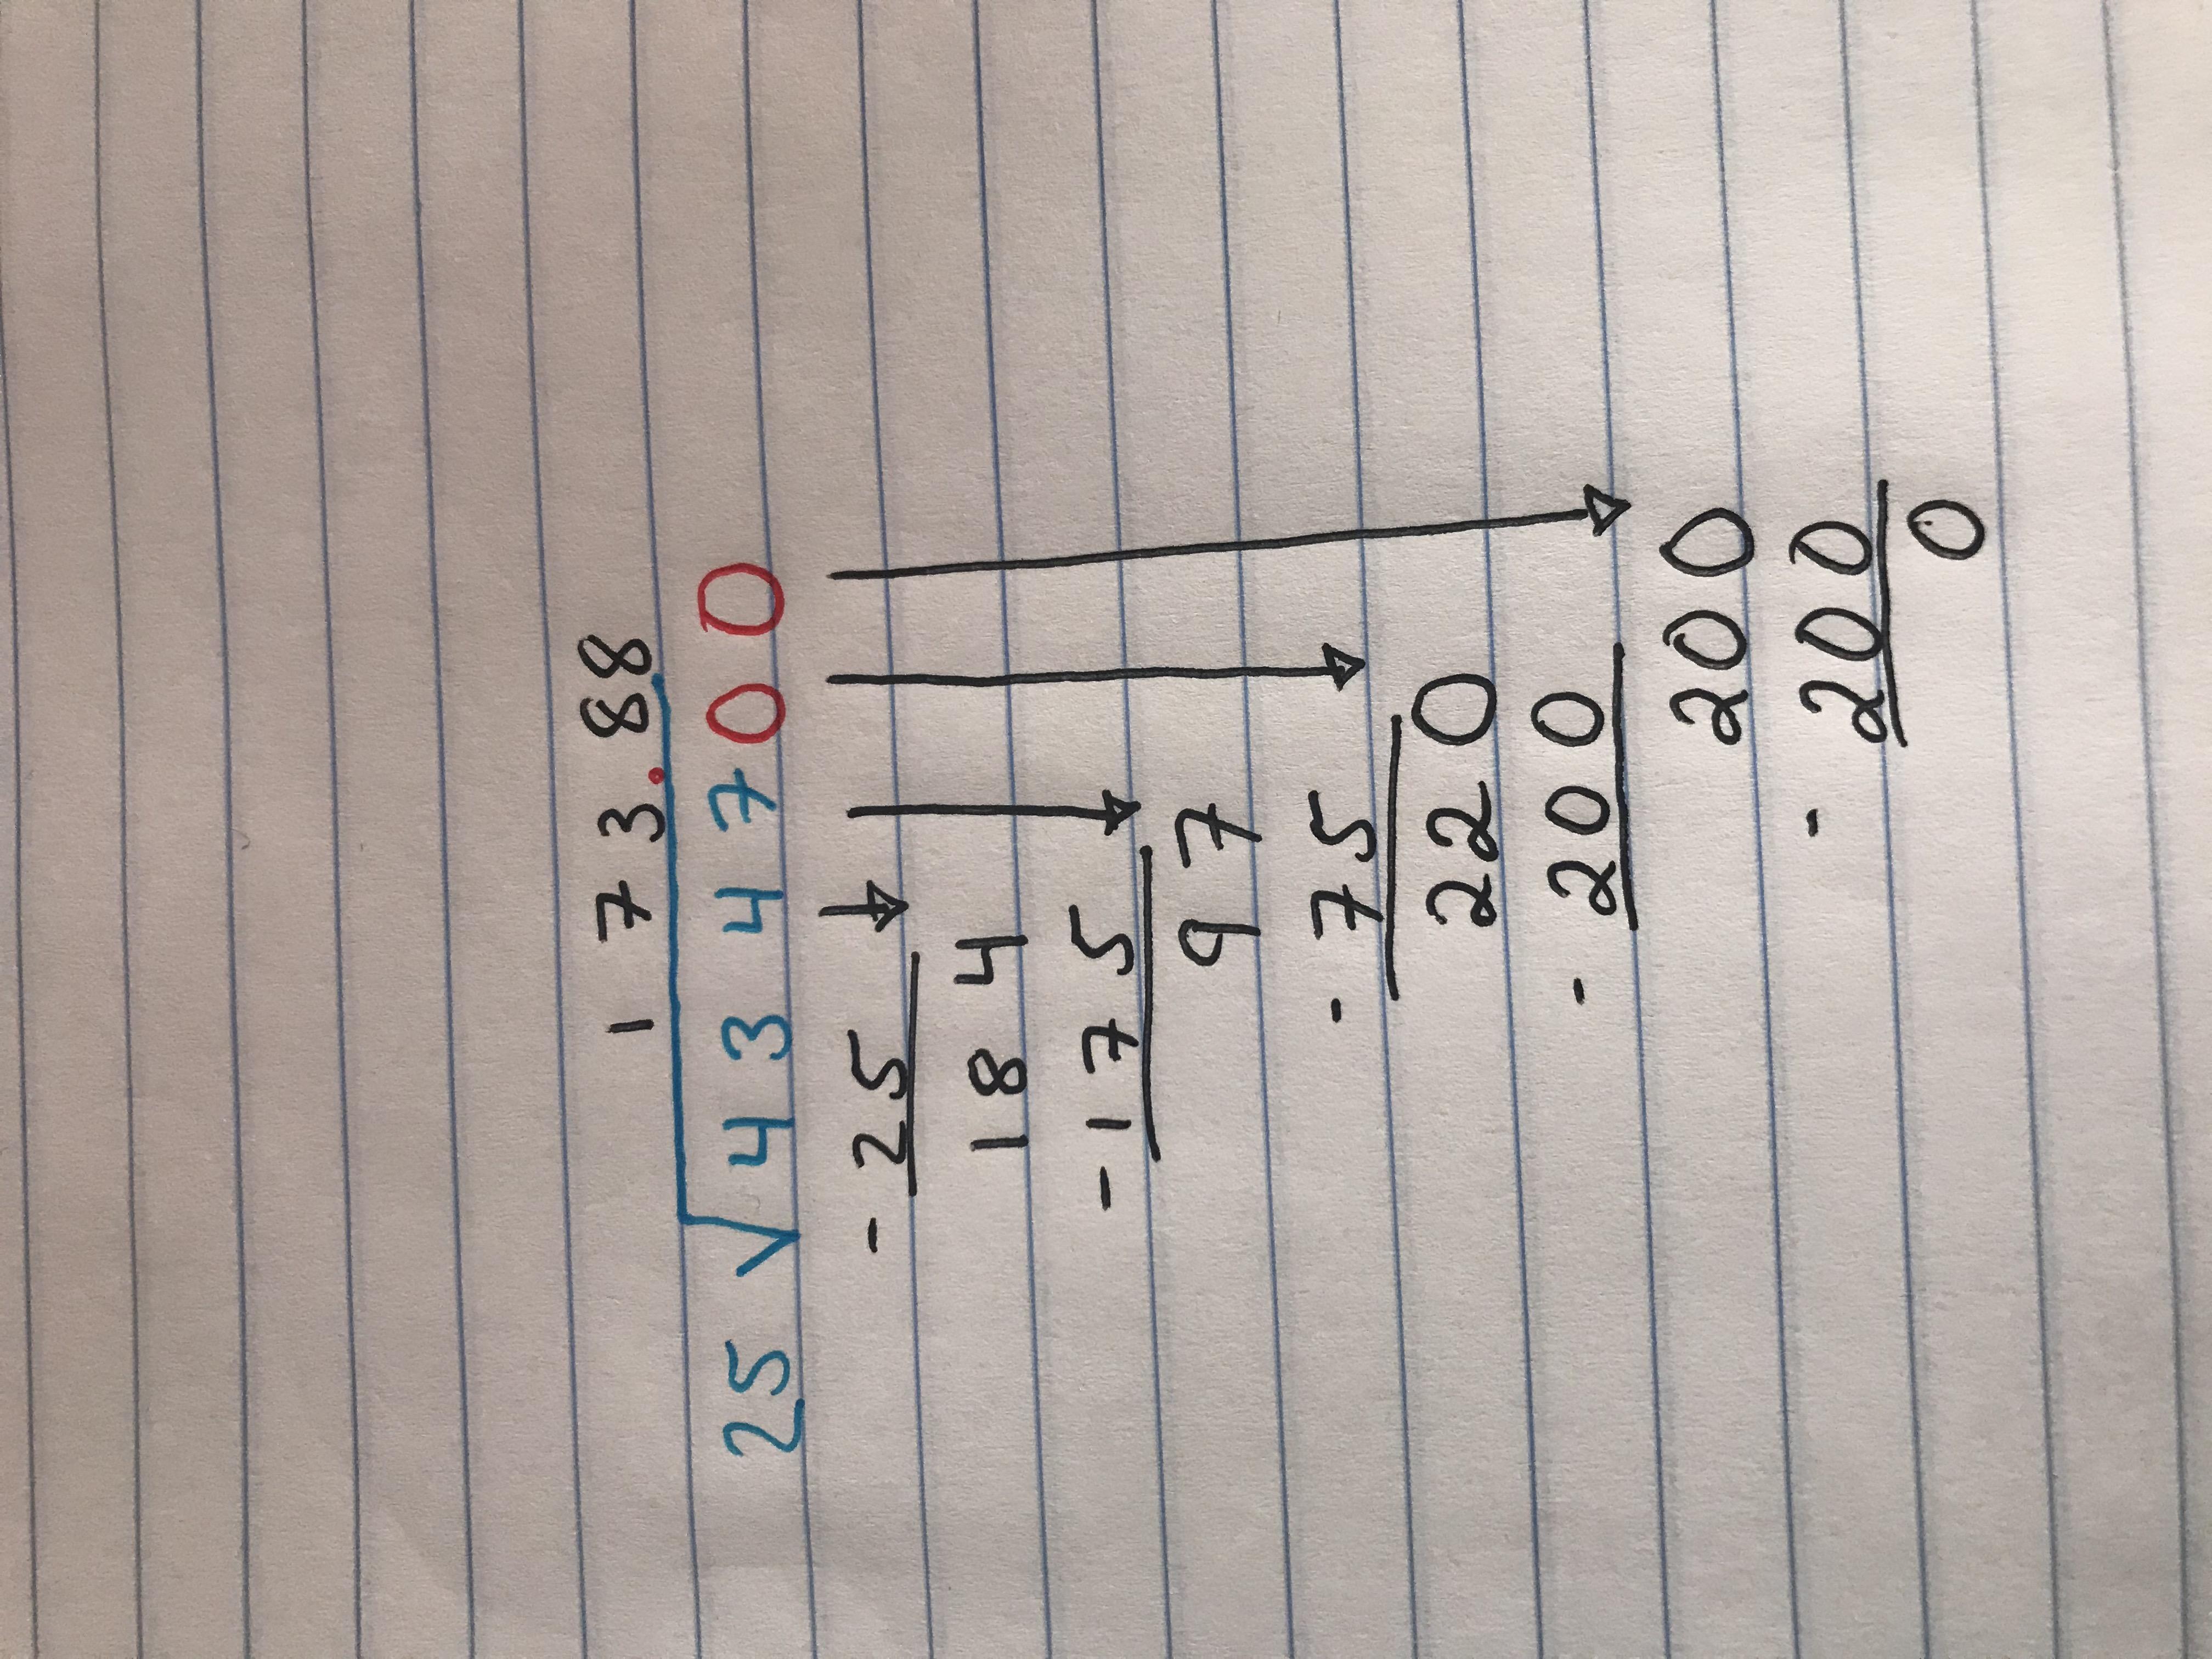 1 7 3.88
25 √ 4 3 4 7 0 0
- 25
1 8 4
- 1 7 5
9 7
- 75
22 0
- 20 0
20 0
- 20 0
0